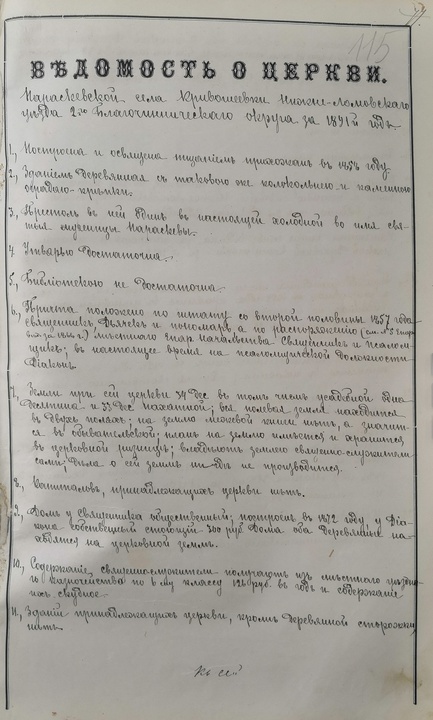 115
ВѢДОМОСТЬ О ЦЕРКВИ.
Параскевской села Кривошеевки Нижне-Ломовскаго
уѣзда 2го Благочинническаго округа за 1891й годъ.
1., Построена и освящена тщаніемъ прихожанъ въ 1853 году.
2., Зданіемъ деревянная съ таковою же колокольнею и каменною
оградою крѣпки.
3., Престолъ въ ней одинъ въ настоящей холодной во имя свя-
тыя мученицы Параскевы.
4 Утварью достаточна.
5., Библіотекою не достаточна.
6., Причта положено по штату со второй половины 1857 года
священникъ, Дьячекъ и пономарь, а по распоряженію
мѣстнаго Епар. начальства священникъ и псалом-
щикъ; въ настоящее время на псаломщической должности
Діаконъ.
7., Земли при сей церкви 34 дес. въ томъ числѣ усадебной одна
десятина и 33 дес. пахатной; вся полевая земля находится
въ двухъ поляхъ; на землю межевой книги нѣтъ, а значит-
ся въ обывательской; планъ на землю имѣется и хранится
въ церковной ризницѣ; владѣютъ землею священно-служители
сами; дѣла о сей землѣ нигдѣ не производится.
8., Капиталовъ, принадлежащихъ церкви нѣтъ.
9., Домъ у священника общественный; построенъ въ 1872 году, у Діа-
кона собственный стоющій 300 руб. Дома оба деревянные на-
ходятся на церковной землѣ.
10., Содержаніе священнослужители получаютъ изъ мѣстнаго уѣздна-
го казначейства по 6му классу въ годъ и содержаніе
ихъ скудное.
11., Зданій принадлежащихъ церкви, кромѣ деревянной сторожки,
нѣтъ.
Къ сей